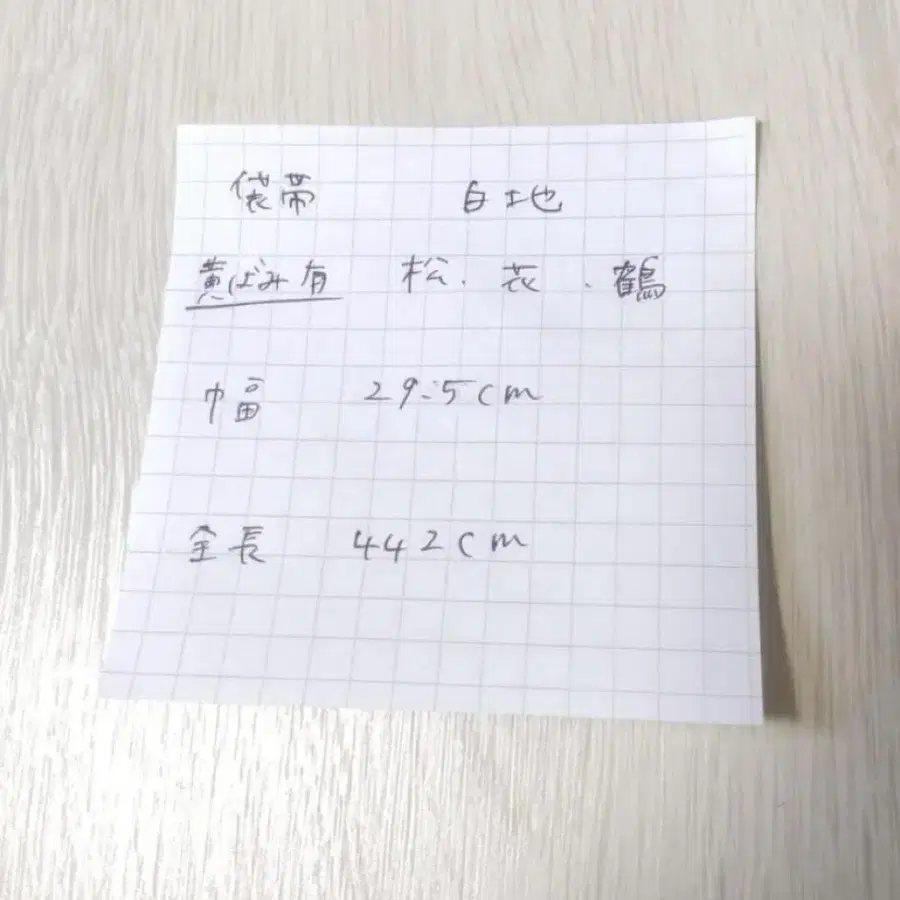 袋帯 白地
黄ばみ有 松.花.鶴
巾幅 29.5cm
全長 442cm